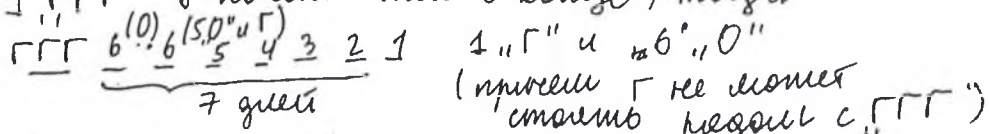 "ГГГ"
ГГГ 6 (0) 6 (5„0" и Г) 5 4 3 2 1 1 „Г" и 6 „0"
7 дней (причем Г не может
стоять рядом с „ГГГ")